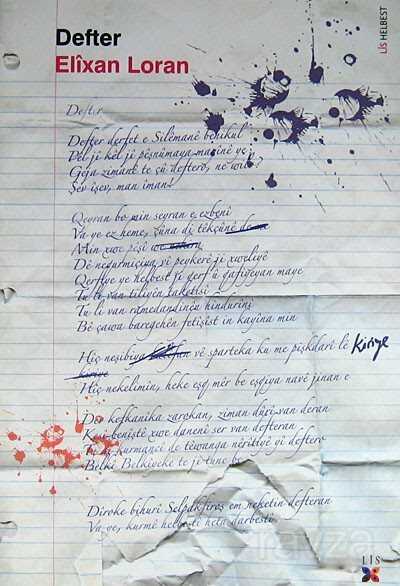 Defter
Elîxan Loran
LÎS HELBEST
Defter
Defter derfet e Silêmanê benikul
Pel jî kel ji pêşnûmaya marînê ye
Geja zimanî te çû defterò, ne wilo?
Şev işev, man iman!
Qeyran bo min seyran e ezbenî
Va ye ez heme, çûna di têkçûnê
Min xwe pişî we
Dê negurmiçiya vî peykerê ji xweliyê
Qerfiye ye helbest ji qerf û gafiyeyan maye
Tu li van tiliyên
Tu li van ramedandinên hindurînî
Bê çawa baregehên fetîşîst in kayîna min
Hîç nesîbiya vê sparteka ku me pişkdarî lê Kiriye
kiriye
Hîç nekelimin, heke eşq mêr be eşqiya navê jinan e
Der kefkanika zarokan, ziman dûçî van deran
benîştê xwe danenî ser van defteran
kurmancî de têwanga nêrîtiyê yî deftero
Belkî Belkîyeke te jî tune be
Dîroke bihurî Selpakfiroş em neketin defteran
Va ye, kurmê helbestî heta darbestî
LÎS